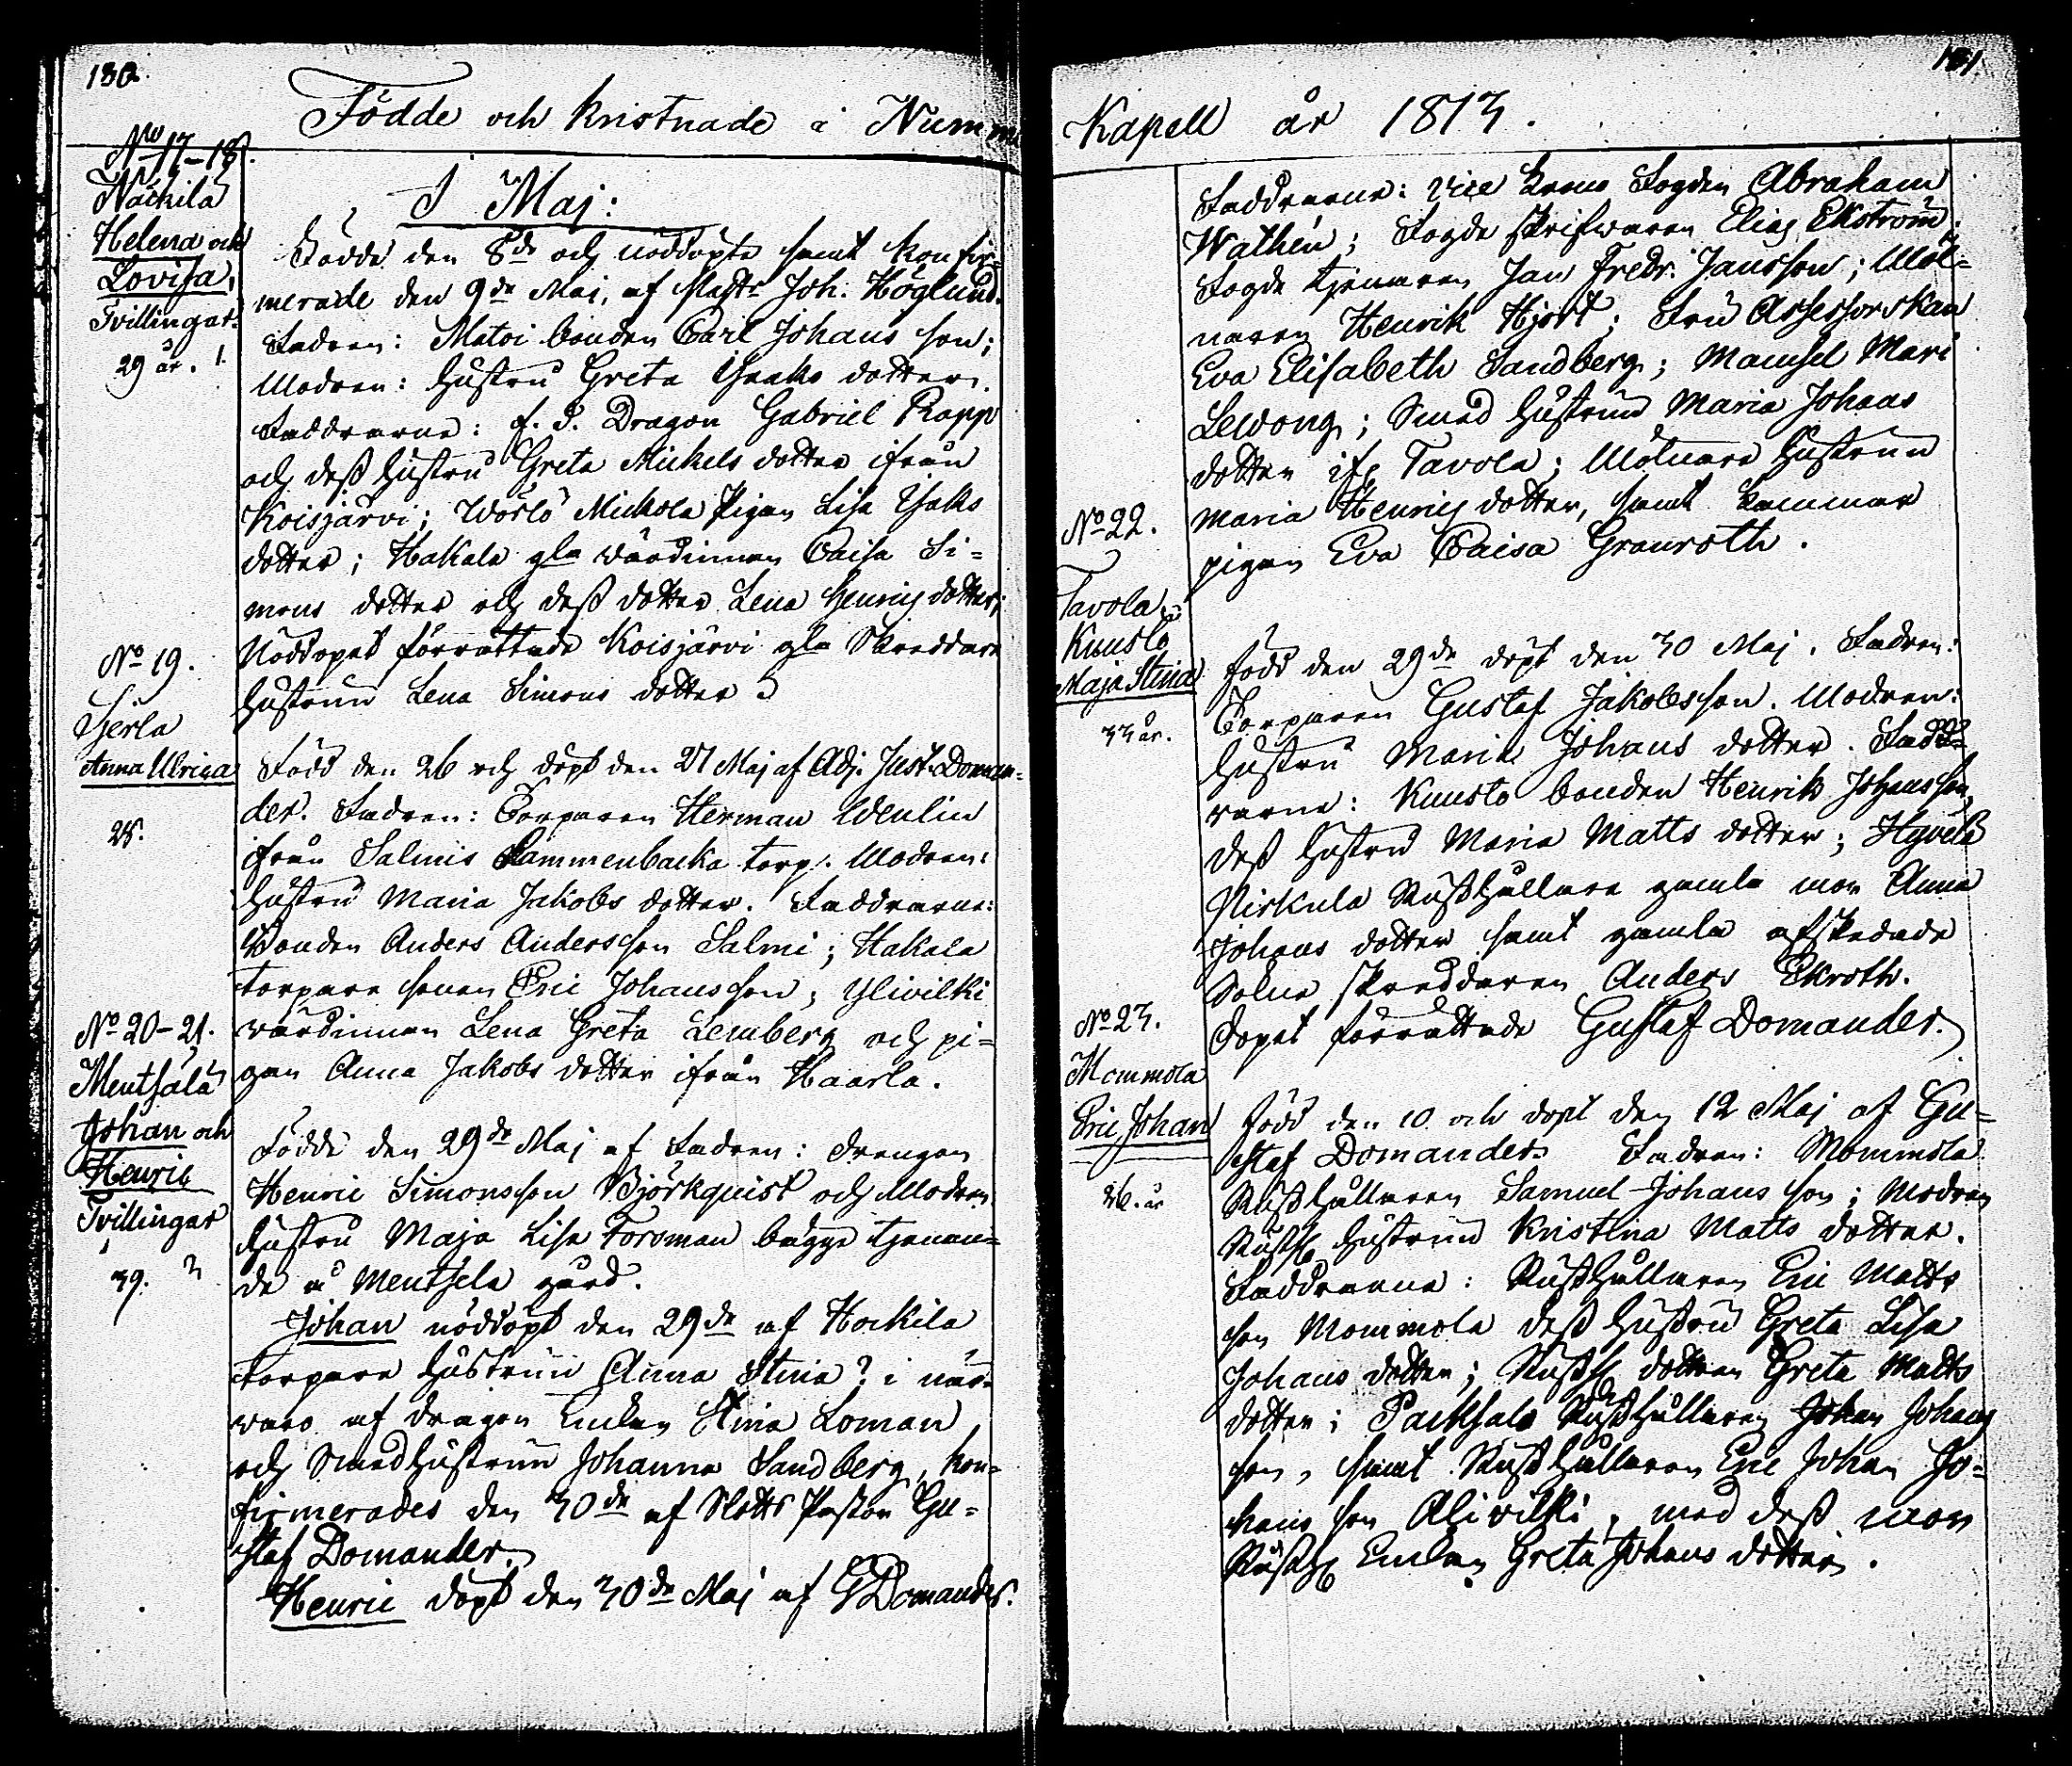 130.
Födde och kristnade i Nummi
No 17-18.
Näckilä
Helena och
Lovisa,
Tvillingar.
29 år. 1.
I Maj:
Födde den 8de och nöddöpte samt konfir=
merade den 9de Maj, af Mastr Joh. Höglund.
Fadren: Matoi bonden Carl Johans son;
Modren: Hustru Greta Isaks dotter.
Faddrarne: f. d. Dragon Gabriel Rapp
och dess Hustru Greta Mickels dotter ifrån
Koisjärvi; Wörlö Mickola Pigan Lisa Isaks
dotter; Hakala gla värdinnan Caisa Si=
mons dotter och dess dotter Lena Henrics dotter;
Nöddopet förrättade Koisjärvi gla Skreddare
Hustrun Lena Simons dotter
No 19.
Sierla
Anna Ulrica
28.
Född den 26 och döpt den 27 Maj af Adj. Just. Doman=
der. Fadren: Torparen Herman Wenlin
ifrån Salmis Lammenbacka torp. Modren:
Hustru Maria Jakobs dotter. Faddrarne:
Bonden Anders Andersson Salmi; Hakala
torpare sonen Eric Johansson; Ylivilki
värdinnan Lena Greta Lemberg och pi=
gan Anna Jakobs dotter ifrån Haarla.
No 20-21.
Mentsälä
Johan och
Henric
Tvillingar
39. 3
Födde den 29de Maj af Fadren: drengen
Henric Simonsson Björkquist och Modren
Hustru Maja Lisa Forsman bägge tjenan=
de å Mentsela gård.
Johan nöddöpt den 29de af Hockila
torpare hustrun Anna Stina? i när=
varo af dragon Enkan Stina Loman
och Smedhustrun Johanna Sandberg, kon=
firmerades den 30de af Slotts Pastor Gu=
staf Domander.
Henric döpt den 30de Maj af G Domander.
131
Kapell år 1813.
Faddrarne: Vice Krono Fogden Abraham
Wathén; Fogde skrifwaren Elias Ekström;
Fogde tjenaren Jan Fredr. Jansson; Möl=
naren Henrik Hjort; Fru Assessorskan
Eva Elisabeth Sandberg; Mamsel Mari
Lewong; Smed Hustrun Maria Johans
dotter ifr Tavola; Mölnare Hustrun
Maria Henrics dotter, samt kammar
pigan Eva Caisa Granroth.
No 22.
Tavola
Kuusto
Maja Stina
33 år.
Född den 29de döpt den 30 Maj. Fadren:
Torparen Gustaf Jakobsson. Modren:
Hustru Maria Johans dotter. Fadd=
rarne: Kuusto bonden Henrik Johansson,
dess Hustru Maria Matts dotter; Hyvelä
Nirkula Rusthållare gamla mor Anna
Johans dotter samt gamla afskedade
Sokne skreddaren Anders Ekroth.
Dopet förrättade Gustaf Domander.
No 23.
Mommola
Eric Johan
26. år
Född den 10 och döpt den 12 Maj af Gu=
staf Domander. Fadren: Mommola
Rusthållaren Samuel Johans son; Modren
Rusth Hustrun Kristina Matts dotter.
Faddrarne: Rusthållaren Eric Matts
son Mommola dess Hustru Greta Lisa
Johans dotter; Rusth dottren Greta Matts
dotter; Packsalo Rusthållaren Johan Johans
son, samt Rusthållaren Eric Johan Jo=
hans son Alivilki, med dess mor
Rusth Enkan Greta Johans dotter.